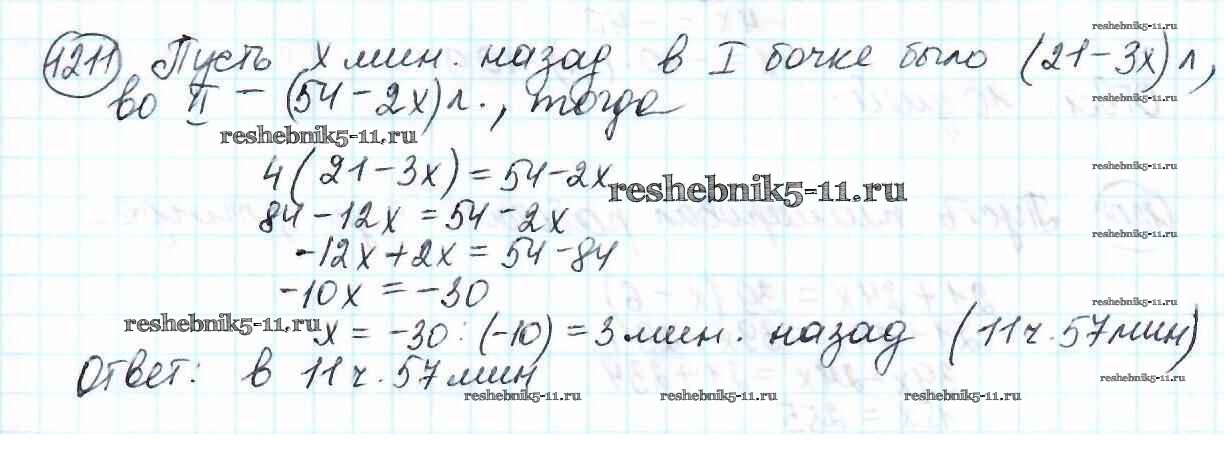 reshebnik5-11.ru
1211 Пусть x мин. назад в I бочке было (21-3x) л,
во II - (54-2x) л., тогда
reshebnik5-11.ru
reshebnik5-11.ru
4(21-3x)=54-2x
reshebnik5-11.ru
reshebnik5-11.ru
84-12x=54-2x
reshebnik5-11.ru
-12x+2x=54-84
-10x=-30
reshebnik5-11.ru
reshebnik5-11.ru
x=-30:(-10)=3 мин. назад (11ч.57мин)
Ответ: в 11ч.57мин
reshebnik5-11.ru
reshebnik5-11.ru reshebnik5-11.ru reshebnik5-11.ru reshebnik5-11.ru